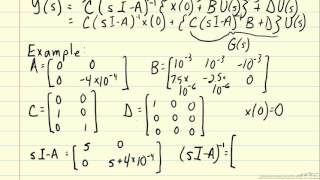 Y(s) = C(sI-A)⁻¹{x(0)+BU(s)}+DU(s)
= C(sI-A)⁻¹x(0)+{C(sI-A)⁻¹B+D}U(s)
G(s)
Example:
A=[0 0; 0 -4×10⁻⁴] B=[10⁻³ 10⁻³ -10⁻³; 7.5×10⁻⁶ -2.5×10⁻⁶ 0]
C=[0 0; 1 0; 0 1] D=[1 0 0; 0 0 0; 0 0 0] x(0)=0
sI-A=[s 0; 0 s+4×10⁻⁴] (sI-A)⁻¹=[